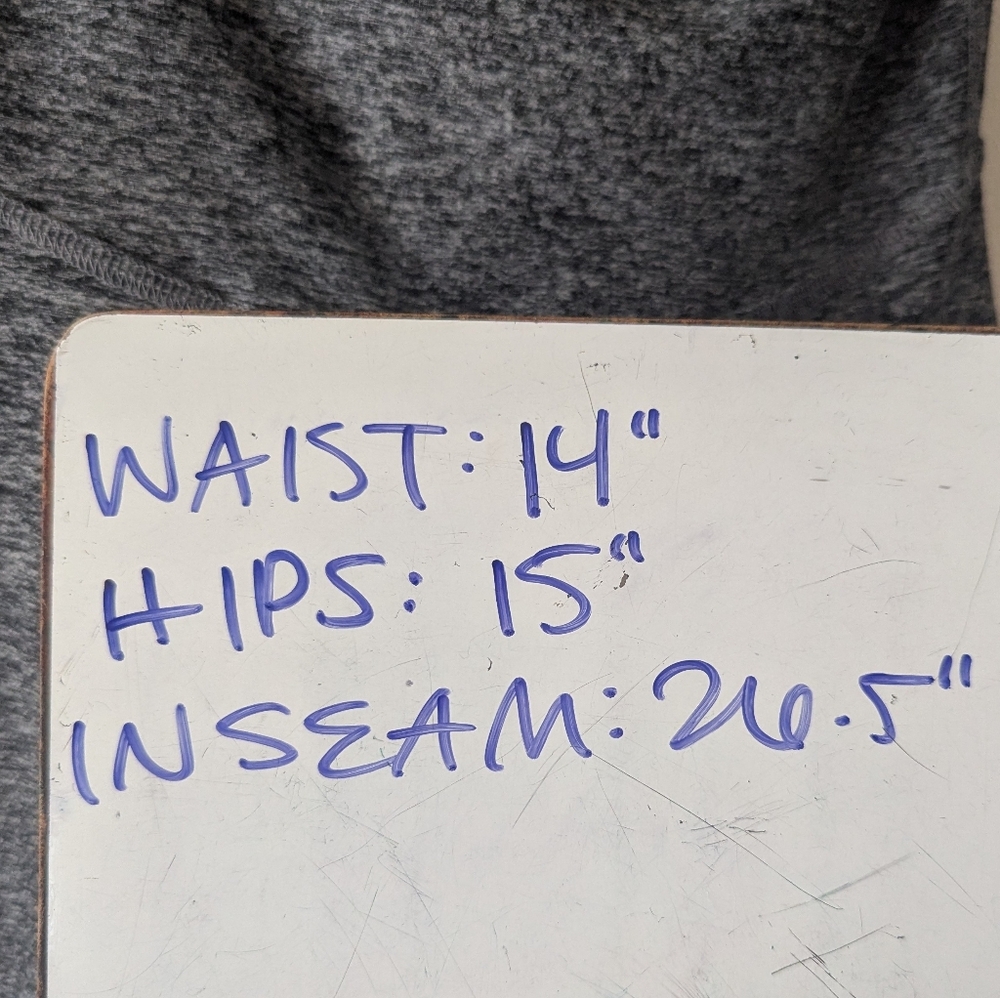 WAIST: 14"
HIPS: 15"
INSEAM: 26.5"